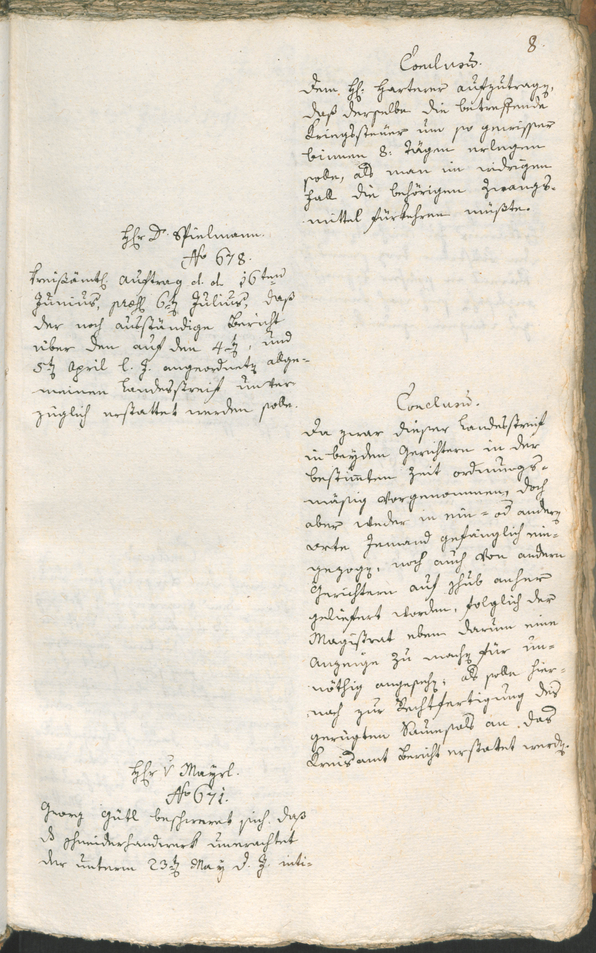 8.
Conclusum.
Dem H. Harterer aufzutragen,
daß derselbe die betreffende
Kriegssteuer um so gewisser
binnen 8: Tägen erlegen
solle, als man im widrigen
Fall die behörigen Zwangs-
mittel fürkehren müßte.
Hhr Dr. Spielmann.
No 678.
Kreisämtl. Auftrag d. d. 16ten
Junius, præs. 6ten Julius, daß
der noch ausständige Bericht
über den auf den 4ten, und
5ten April l. J. angeordneten allge-
meinen Landesstreif unver-
züglich erstattet werden solle.
Conclusum.
Da zwar dieser Landesstreif
in beyden Gerichtern in der
bestimten Zeit ordnungs-
mäsig vorgenommen, doch
aber weder in ein- od andern
orte Jemand gefänglich ein-
gezogen, noch auch von andern
Gerichtern auf Schub anher
geliefert worden, folglich der
Magistrat eben darum eine
Anzeige zu machen für un-
nöthig angesehen; als solle hier-
nach zur Rechtfertigung des
gerügten Saumsals an das
Kreisamt Bericht erstatet werden.
Hhr v Mayrl.
No 671.
Georg Gütl beschweret sich, daß
das Schneiderhandwerk unerachtet
der unterm 23ten May d. J. inti-